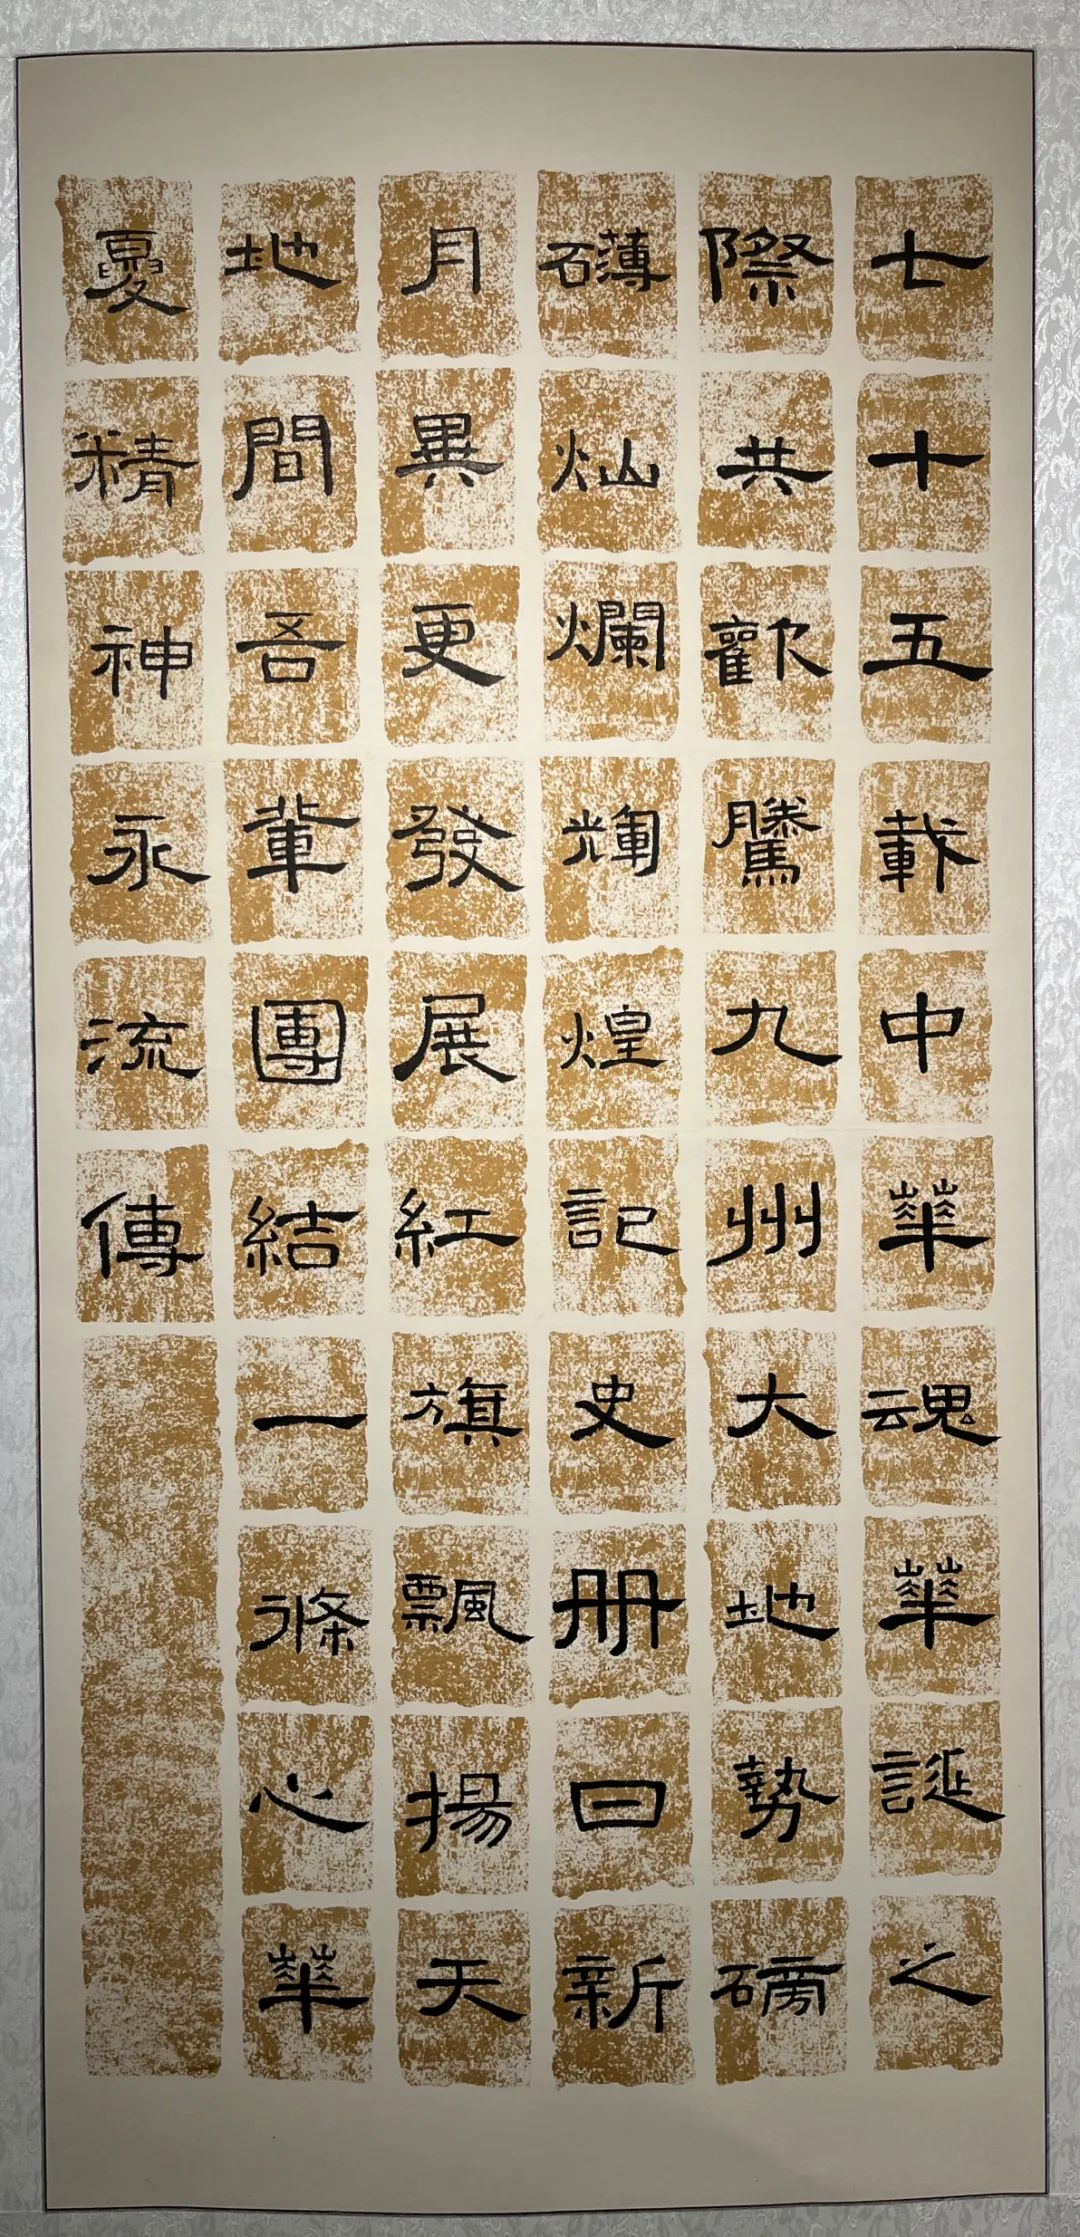 七十五載中華魂華誕之
際共歡騰九州大地勢磅
礴灿爛輝煌記史册日新
月異更發展紅旗飄揚天
地間吾輩團結一條心華
夏精神永流傳